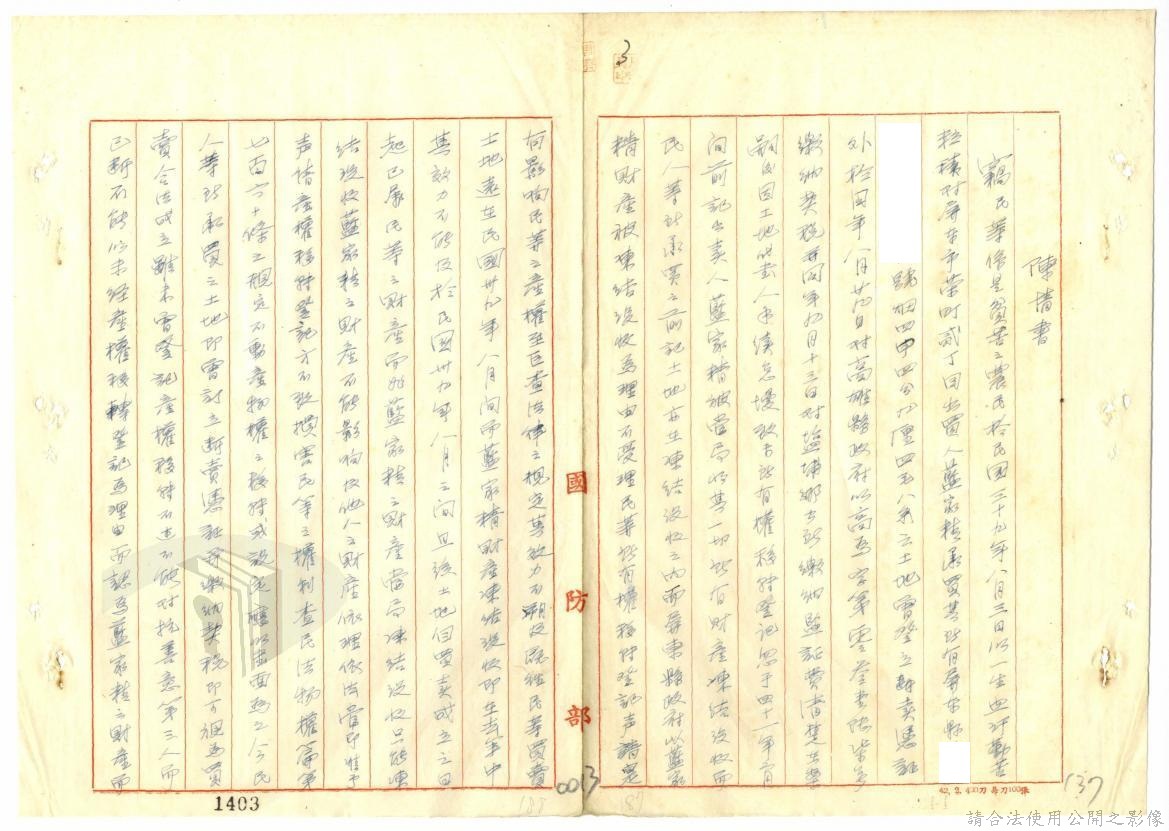 陳情書
竊民等係是貧苦之農民於民國三十九年八月三日以一生血汗勤苦
粒積對屏東市榮町貳丁目出賣人藍家精承買其所有屏東縣
號畑四甲四分九厘四毛八系之土地曾登立斷賣憑証
外於同年八月廿九日對高雄縣政府以高為字第零叁
繳納契稅并同年九月十三日對塩埔鄉公所繳納監証費清楚在案
嗣後因土地代書人手續怠慢致未所有權移轉登記忽于四十一年六月
間前記出賣人藍家精被當局將其一切所有財產凍結沒收而
民人等所承買之前記土地亦在凍結沒收之內而屏東縣政府以藍家
精財產被凍結沒收為理由不受理民等所有權移轉登記声請是
有影响民等之產權至巨查法律之規定其效力不溯及既往民等買賣
土地遠在民國卅九年八月間而藍家精財產凍結沒收即在去年中
其效力不能及於民國卅九年八月之間且該土地自買賣成立之日
起已屬民等之財產而非藍家精之財產當局凍結沒收只能凍
結沒收藍家精之財產不能影响及他人之財產依理依法當即准予
声請產權移轉登記方不致損害民等之權利查民法物權篇第
七百六十條之規定不動產物權之移轉或設定應以書面為之今民
人等所承買之土地即曾訂立斷賣憑証并繳納契稅即可視為買
賣合法成立雖未曾登記產權移轉不過不能對抗善意第三人而
已斷不能以未經產權移轉登記為理由而認為藍家精之財產而
國防部
3
0013
137
187
188
1403
42. 2. 400刀 每刀100張
請合法使用公開之影像